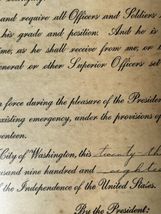 and require all Officers and Soldiers
his grade and position. And he is
time, as he shall receive from me, or
General or other Superior Officers set
n force during the pleasure of the President
existing emergency, under the provisions of
venteen.
City of Washington, this twenty-th
ousand nine hundred and eighteen
f the Independence of the United States.
By the President: